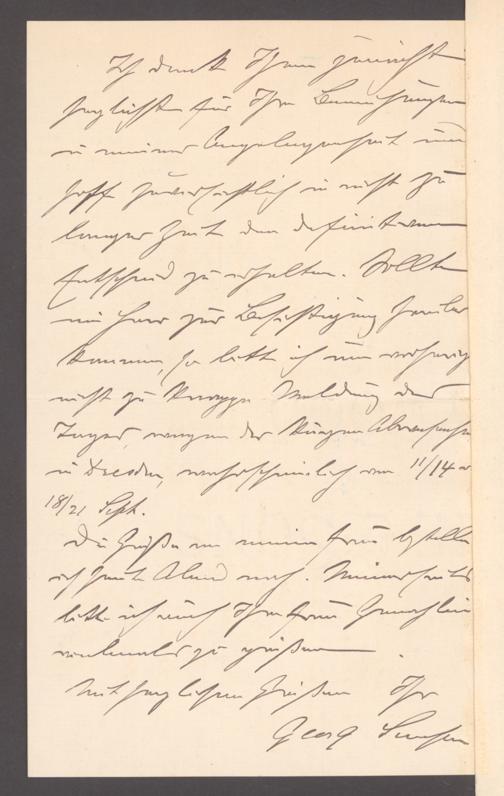 Ich danke Ihnen zunächst
herzlichst für Ihre Bemühungen
in meiner Angelegenheit und
hoffe zuversichtlich in nicht zu
langer Zeit den definitiven
Entscheid zu erhalten. Sollte
ein Herr zur Besichtigung
kommen, so bitte ich um vorherige
nicht zu knappe Meldung des
Tages, wegen der kurzen Abwesenheit
in Dresden, wahrscheinlich am 11/14 o
18/21 Sept.
Die Grüße an meine Frau bestelle
ich heute Abend noch. Meinerseits
bitte ich auch Ihre Frau Gemahlin
vielmals zu grüßen.
Mit herzlichen Grüßen Ihr
Georg